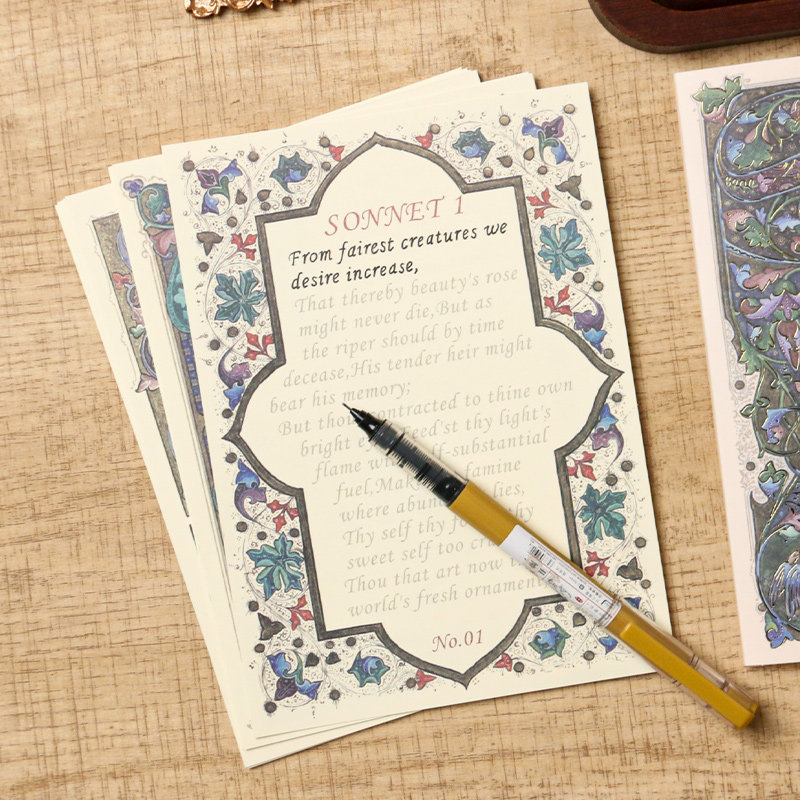 SONNET 1
From fairest creatures we
desire increase,
That thereby beauty's rose
might never die,But as
the riper should by time
decease,His tender heir might
bear his memory;
But thou contracted to thine own
bright feed'st thy light's
flame self-substantial
fuel,Mak famine
where abun lies,
Thy self thy
sweet self too
Thou that art now
world's fresh ornament
No.01